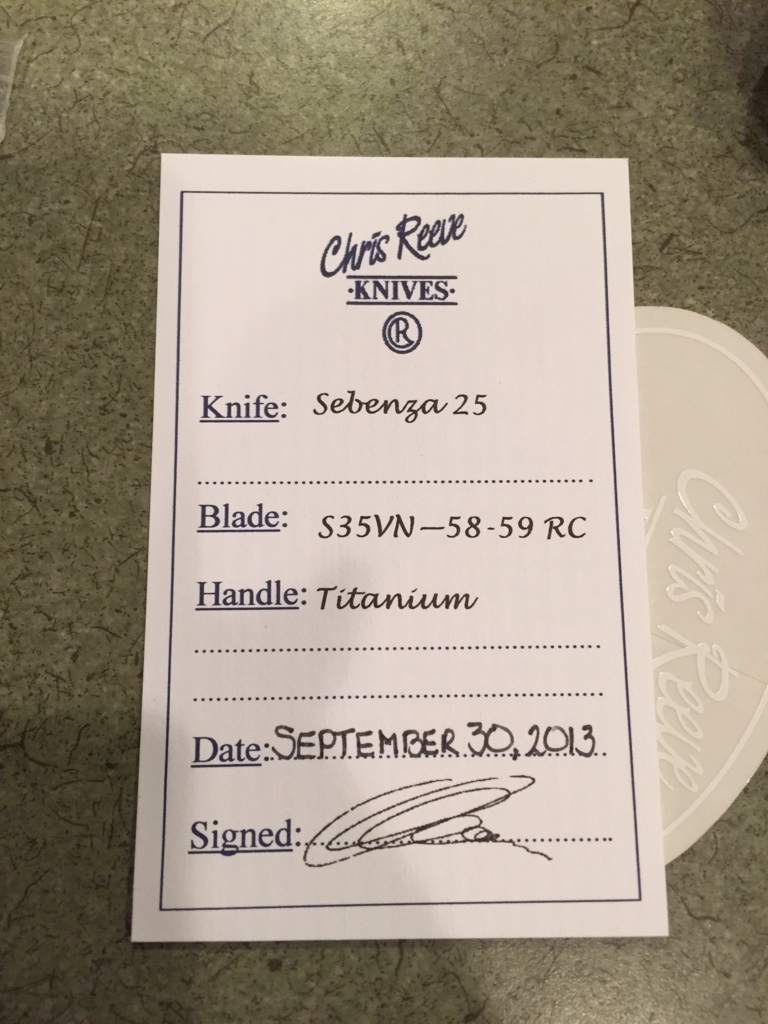 Chris Reeve
·KNIVES·
®
Knife: Sebenza 25
Blade: S35VN—58-59 RC
Handle: Titanium
Date: SEPTEMBER 30, 2013
Signed:
Chris Reeve